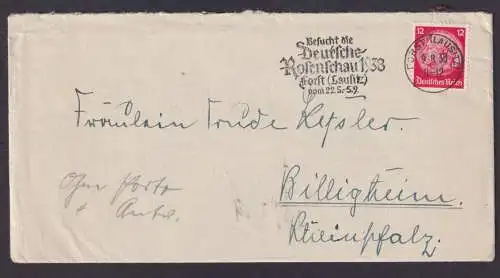 Besucht die
Deutsche
Rosenschau 1938
Forst (Lausitz)
vom 22.5.-5.9.
12 12
Deutsches Reich
FORST (LAUSITZ)
Fräulein Trude Keßler.
Billigheim.
Rheinpfalz.
Ohne Porto
+